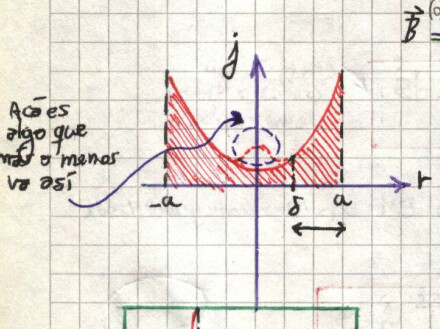 B⃗ (0
=
j
Acá es
algo que
más o menos
va así
-a δ a r